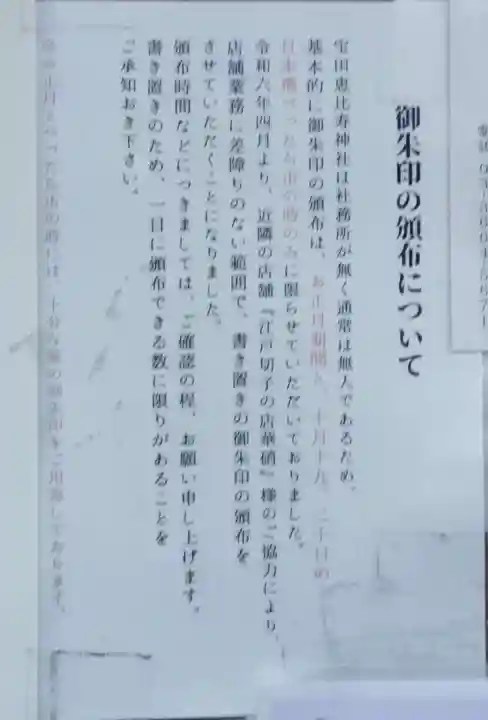 御朱印の頒布について
宝田恵比寿神社は社務所が無く通常は無人であるため、
基本的に御朱印の頒布は、お正月期間と、十月十九、二十日の
日本橋べったら市の時のみに限らせていただいておりました。
令和六年四月より、近隣の店舗『江戸切子の店華硝』様のご協力により、
店舗業務に差障りのない範囲で、書き置きの御朱印の頒布を
させていただくことになりました。
頒布時間などにつきましては、ご確認の程、お願い申し上げます。
書き置きのため、一日に頒布できる数に限りがあることを
ご承知おき下さい。
お正月とべったら市の時には、十分な数の御朱印をご用意しております。